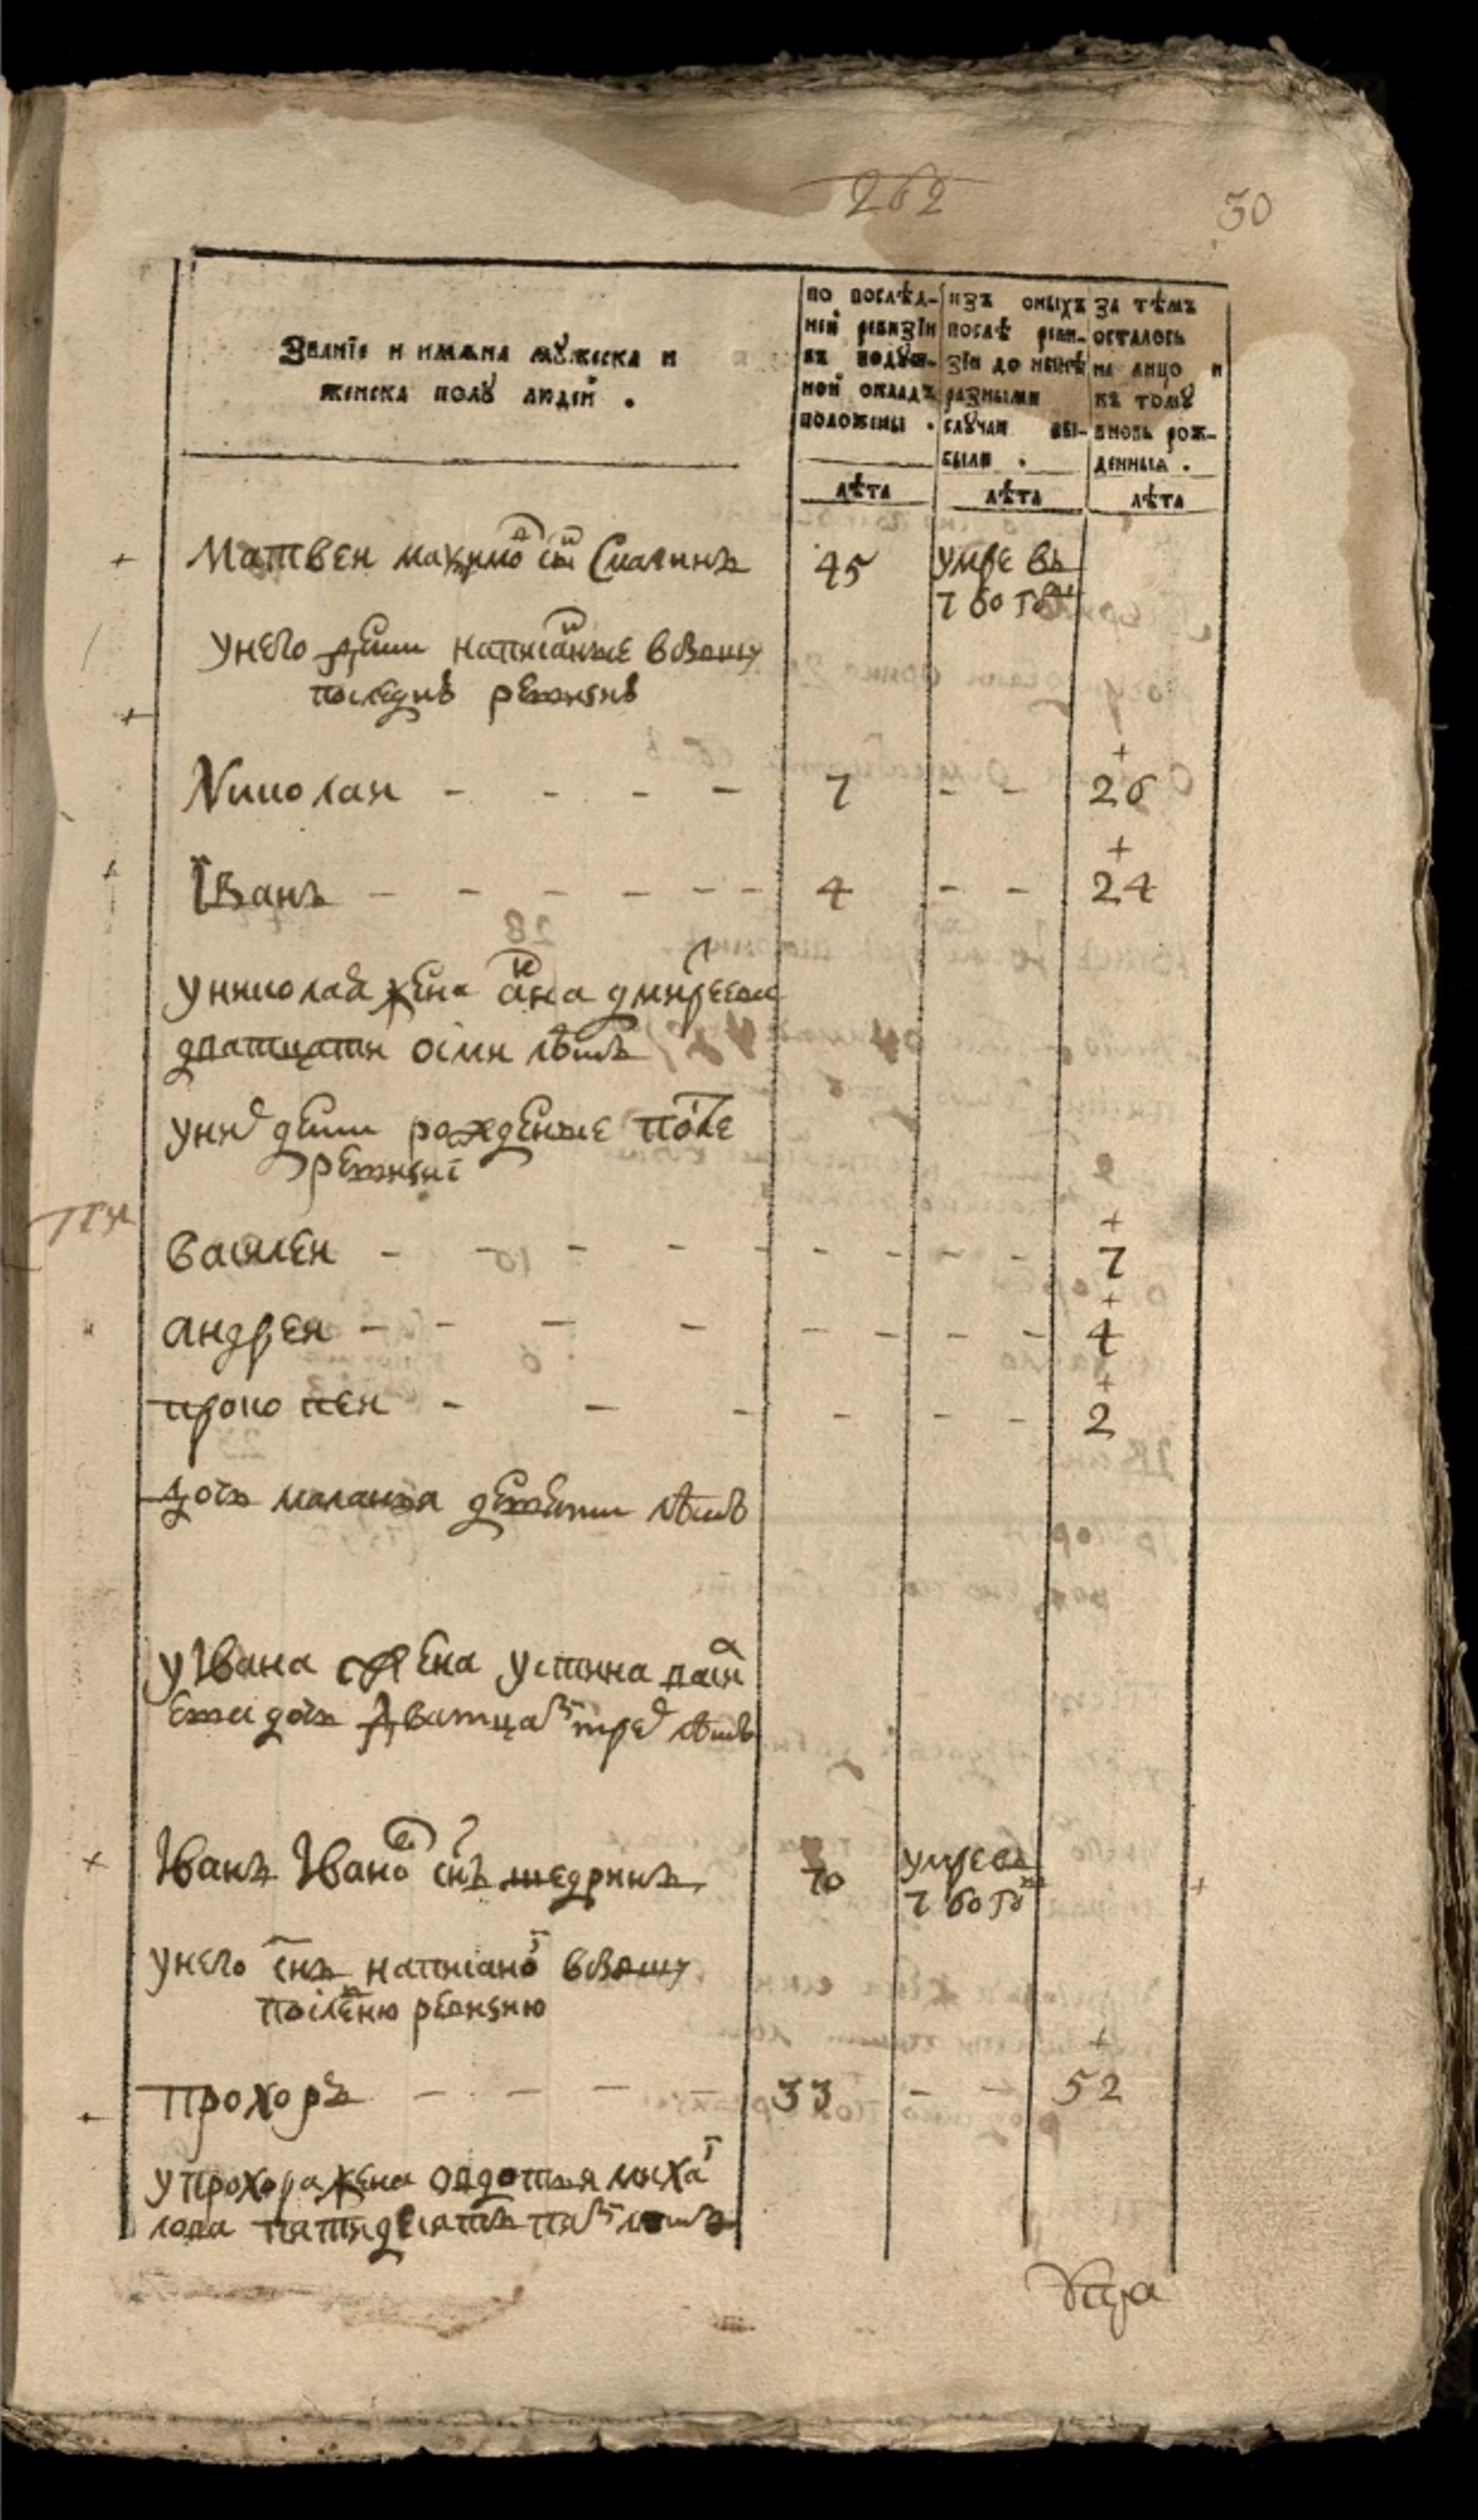 262
30
Званїе и имѧна мꙋжеска и
женска полꙋ людей .
по послѣд-
ней ревизїи
въ подꙋш-
ной окладъ
положены .
изъ оныхъ
послѣ реви-
зїи до нынѣ
разными
слꙋчаи вы-
были .
за тѣмъ
осталось
на лицо и
къ томꙋ
вновь рож-
денныѧ .
лѣта
лѣта
лѣта
Матвеи
45
умре въ
унего дети написаные всвоию
последне ревизие
Николаи - - - - 7 - - 26
Їванъ - - - - - - 4 - - 24
униколая жена ана
дватцати осми летъ
уних дети рожденые после
ревизиї
василеи - - - - - - - - - 7
андреи - - - - - - - - 4
прокопеи - - - - - - 2
дочь маланья девети летъ
уIвана жена устина васи
ева дочь дватцать трех летъ
Iванъ Iвановъ снъ щедринъ
70
умре въ
унего снъ написаной всвоию
последнюю ревизию
прохоръ - - - 33 - - 52
упрохора жена овдотья михаи
лова пятидесятъ пять летъ